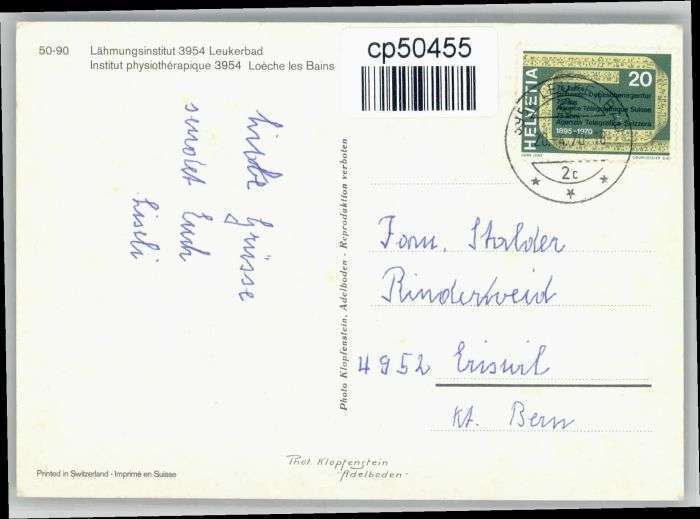 50-90 Lähmungsinstitut 3954 Leukerbad
Institut physiothérapique 3954 Loèche les Bains
cp50455
HELVETIA
20
75 Jahre
Schweiz. Depeschenagentur
75 ans
Agence Télégraphique Suisse
75 anni
Agenzia Telegrafica Svizzera
1895-1970
2c
Liebe Grüsse
sendet Euch
Liseli
Photo Klopfenstein, Adelboden - Reproduktion verboten
Fam. Stalder
Rinderweid
4952 Eriswil
Kt. Bern
Phot. Klopfenstein
-Adelboden-
Printed in Switzerland - Imprimé en Suisse